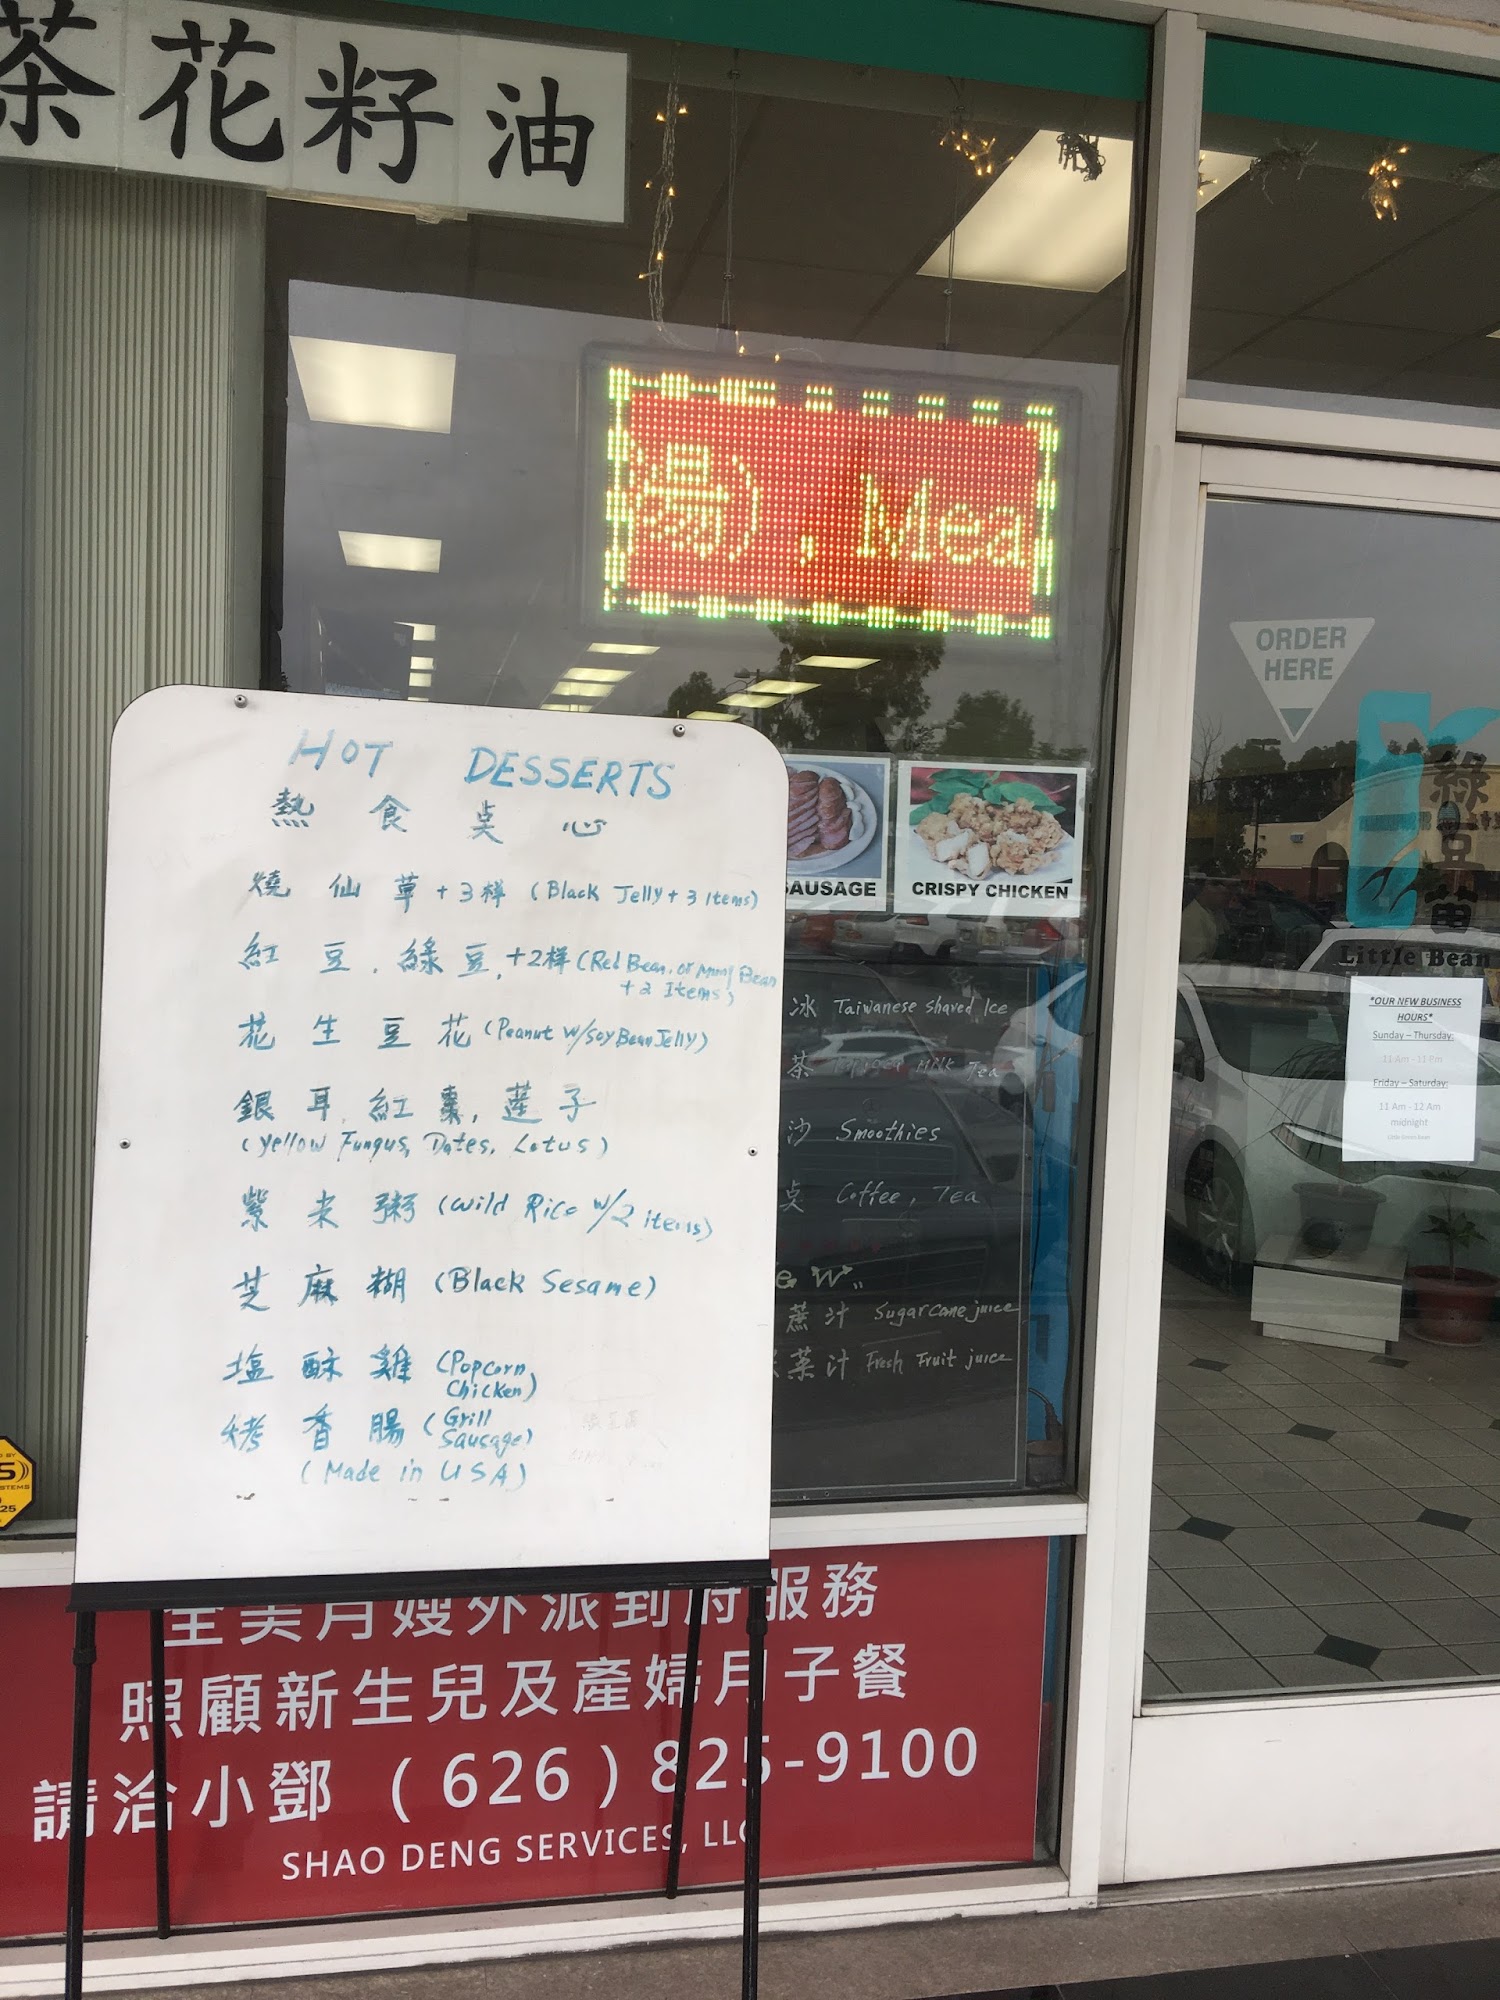 茶花籽油
湯）, Mea
ORDER
HERE
綠豆苗
Little Bean
SAUSAGE
CRISPY CHICKEN
*OUR NEW BUSINESS
HOURS*
Sunday – Thursday:
11 Am - 11 Pm
Friday – Saturday:
11 Am - 12 Am
midnight
HOT DESSERTS
熱食点心
燒仙草+3樣 (Black Jelly + 3 Items)
紅豆, 綠豆, +2样 (Red Bean, or Mung Bean
+2 Items)
花生豆花 (Peanut w/Soy Bean Jelly)
銀耳, 紅棗, 蓮子
(Yellow Fungus, Dates, Lotus)
紫米粥 (Wild Rice w/2 items)
芝麻糊 (Black Sesame)
塩酥雞 (Popcorn
Chicken)
烤香腸 (Grill
Sausage)
(Made in USA)
冰 Taiwanese Shaved Ice
茶 Milk Tea
沙 Smoothies
点 Coffee, Tea
ew..
蔗汁 Sugarcane juice
菓汁 Fresh Fruit juice
全美月嫂外派到府服務
照顧新生兒及產婦月子餐
請洽小鄧 (626) 825-9100
SHAO DENG SERVICES, LLC